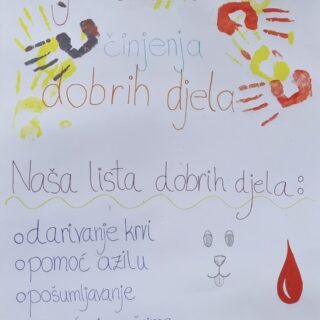 činjenja
dobrih djela
Naša lista dobrih djela:
o darivanje krvi
o pomoć ažilu
o pošumljavanje